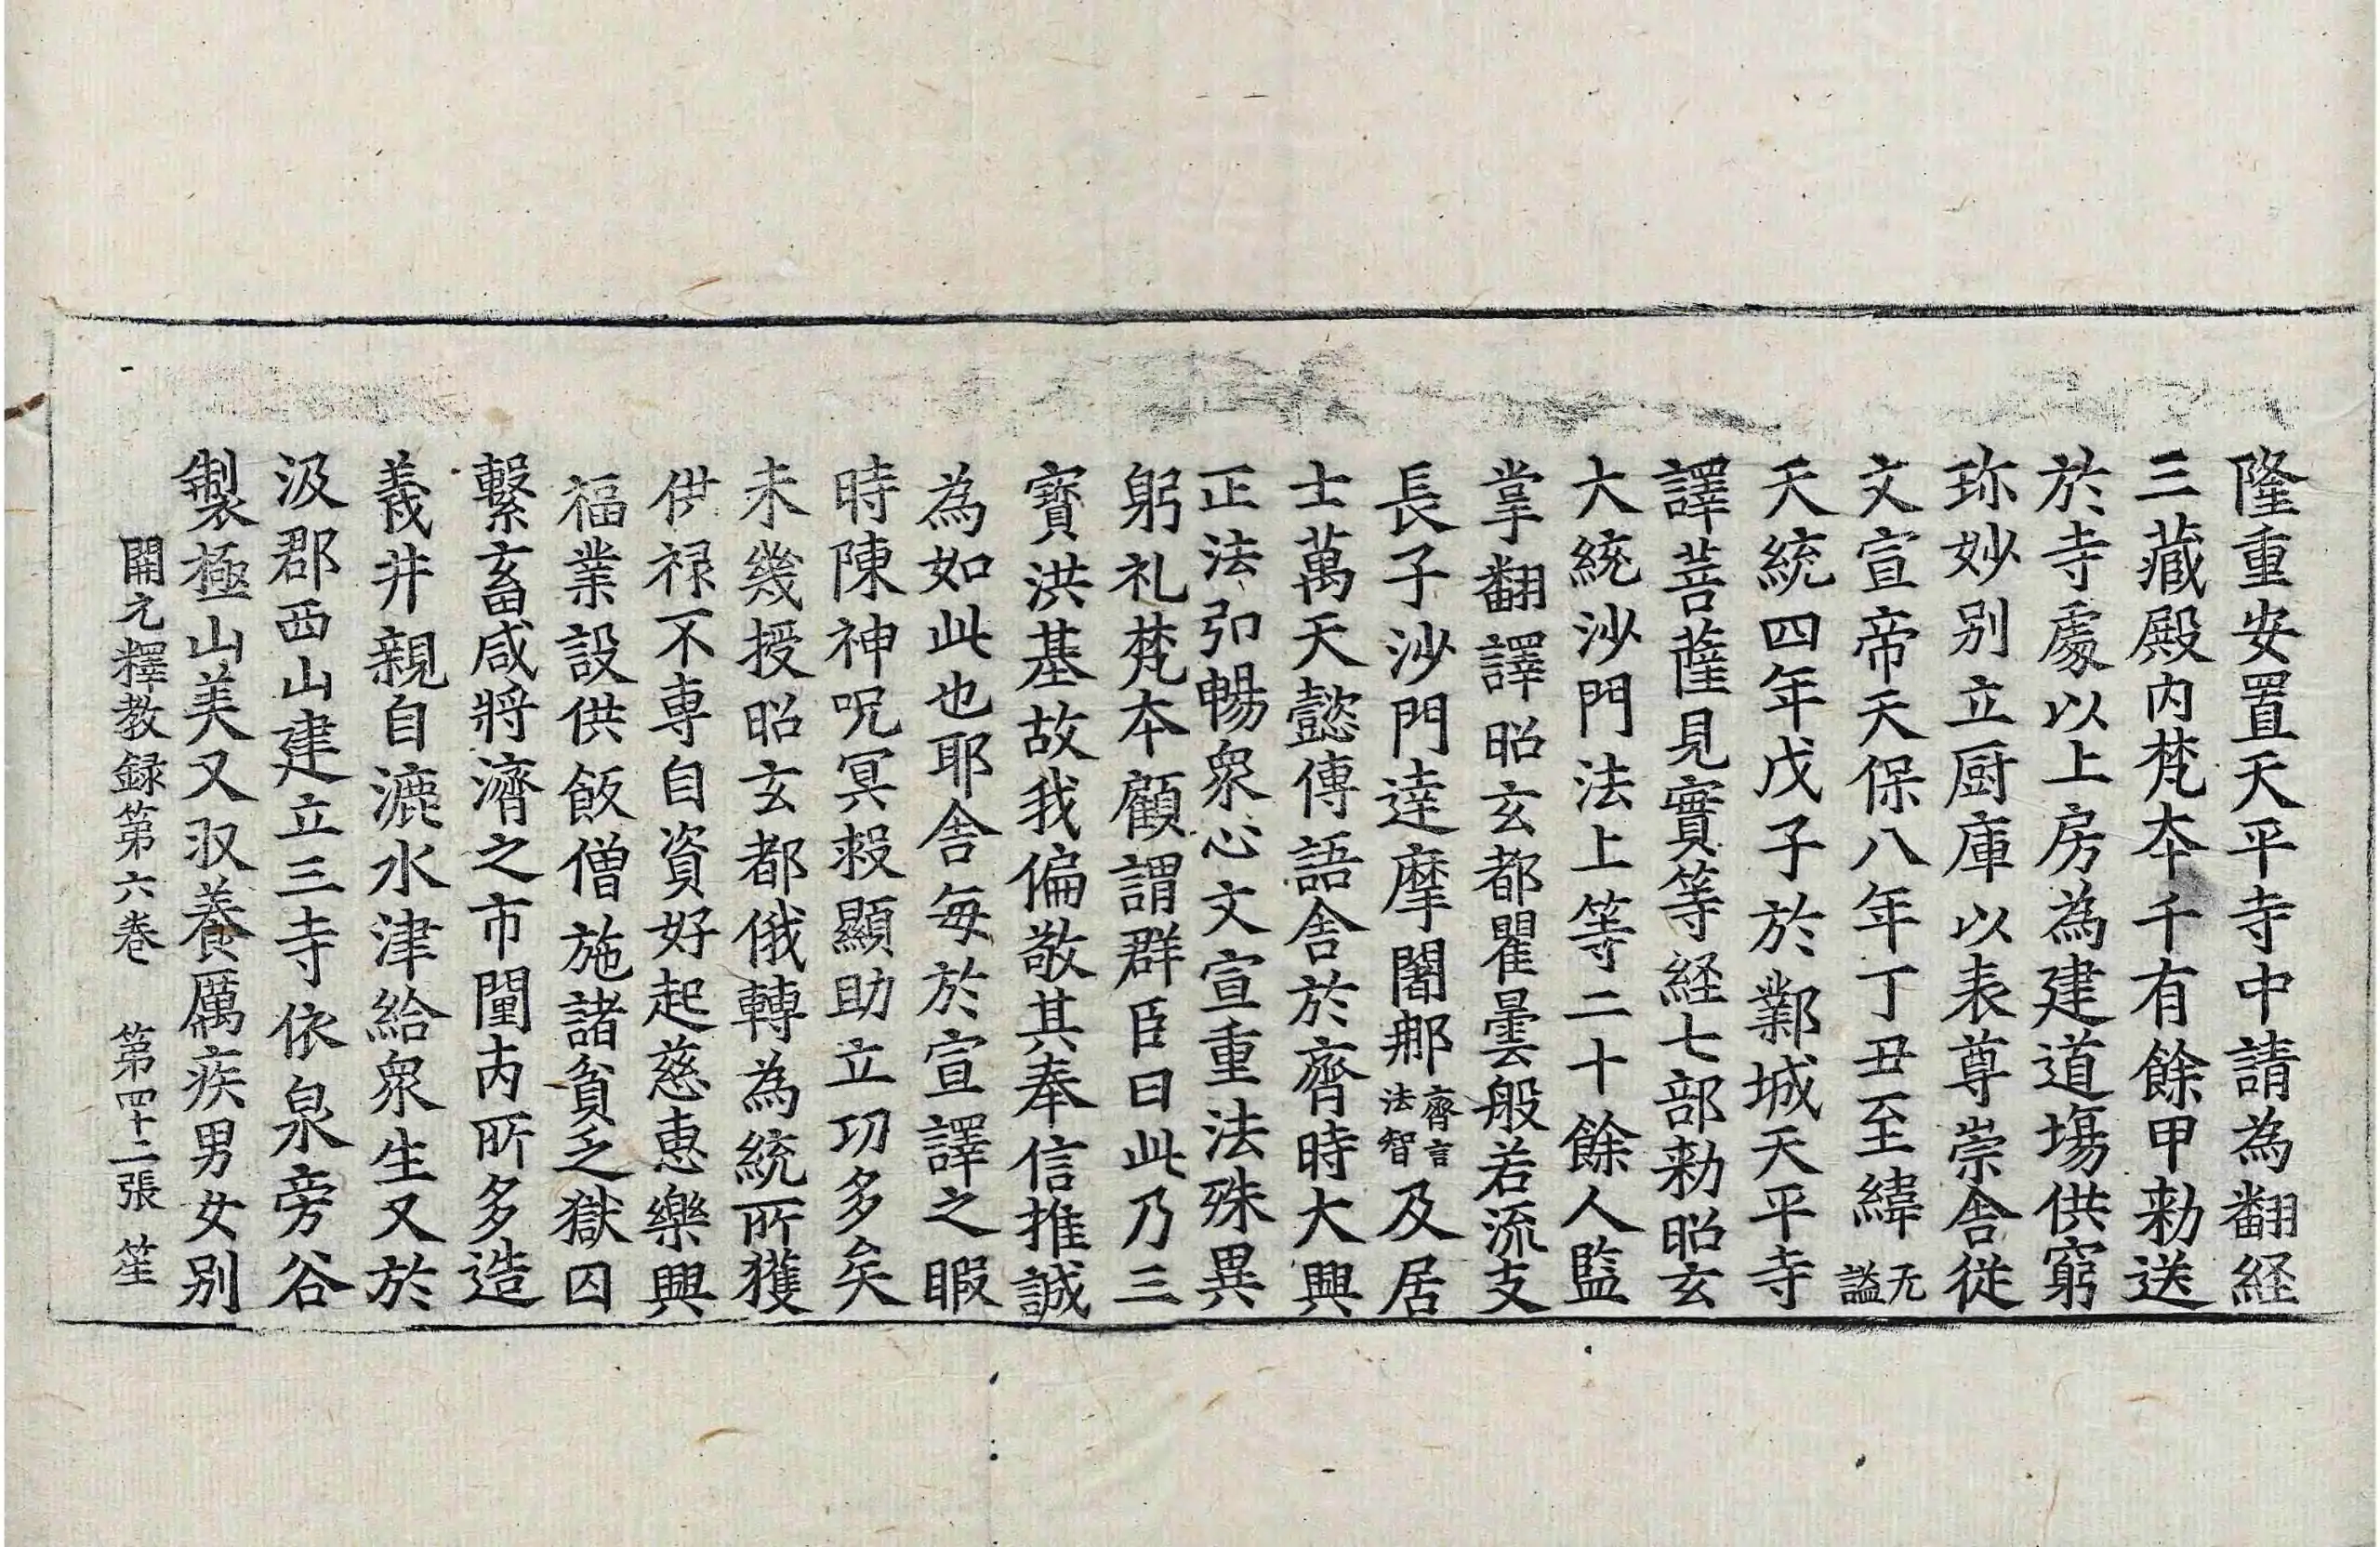 隆重安置天平寺中請為翻経
三藏殿内梵夲千有餘甲勑送
於寺處以上房為建道場供窮
珎妙别立厨庫以表尊崇舎從
文宣帝天保八年丁丑至緯无謚
天統四年戊子於鄴城天平寺
譯菩薩見實等経七部勑昭玄
大統沙門法上等二十餘人監
掌翻譯昭玄都瞿曇般若流支
長子沙門達摩闍那齊言法智及居
士萬天懿傳語舎於齊時大興
正法弘暢衆心文宣重法殊異
躬礼梵夲顧謂群臣曰此乃三
寶洪基故我偏敬其奉信推誠
為如此也耶舎每於宣譯之暇
時陳神呪冥救顯助立功多矣
未幾授昭玄都俄轉為統所獲
供禄不專自資好起慈惠樂興
福業設供飯僧施諸貧乏獄囚
繫畜咸將濟之市閙内所多造
義井親自漉水津給衆生又於
汲郡西山建立三寺依泉旁谷
製極山美又収養厲疾男女别
開元釋教録第六巻　第四十二張　笙